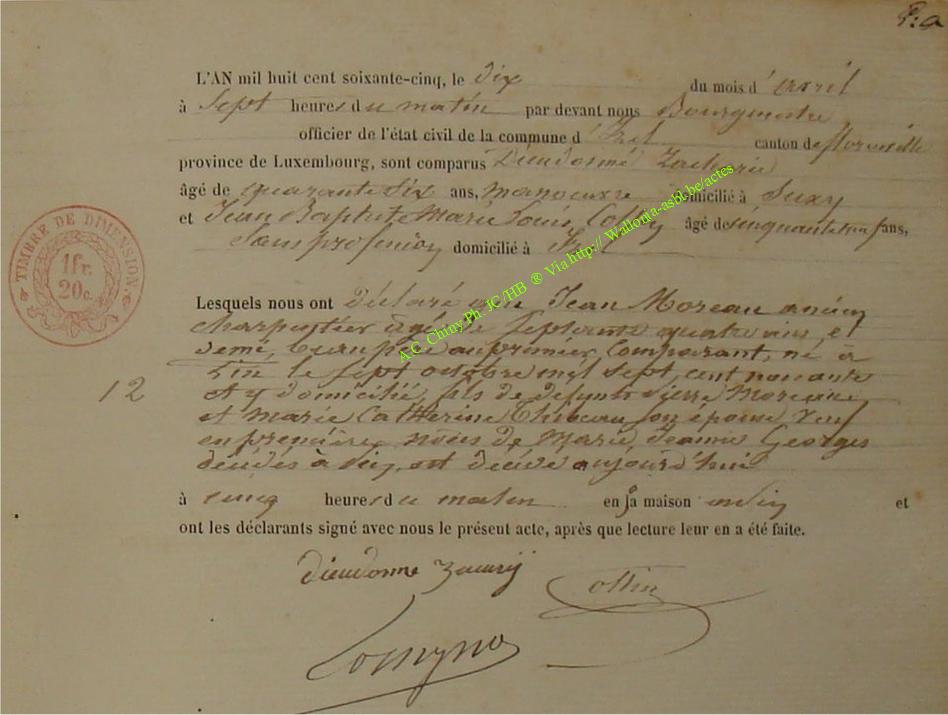 L'AN mil huit cent soixante-cinq, le dix du mois d'avril
à sept heures du matin par devant nous Bourgmestre
officier de l'état civil de la commune d' canton de florenville
province de Luxembourg, sont comparus Dieudonné Zacharie
âgé de quarante six ans, manoeuvre domicilié à Suxy
et Jean Baptiste Marie Louis âgé de cinquante ans,
Sans profession domicilié à
TIMBRE DE DIMENSION.
1 fr.
20 c.
Lesquels nous ont déclaré que Jean Moreau ancien
charpentier âgé de septante quatre ans, et
demi, beaupère au premier comparant, né à
le sept octobre mil sept cent nonante
et y domicilié, fils de défunts Pierre Moreau
12
et Marie Catherine Thibeau veuf
en premières noces de Marie Jeanne Georges
à est décédé aujourd'hui
à cinq heures du matin en sa maison et
ont les déclarants signé avec nous le présent acte, après que lecture leur en a été faite.
dieudonne
A.C. Chiny Ph. JC /HB ® Via http:// Wallonia-asbl.be/actes